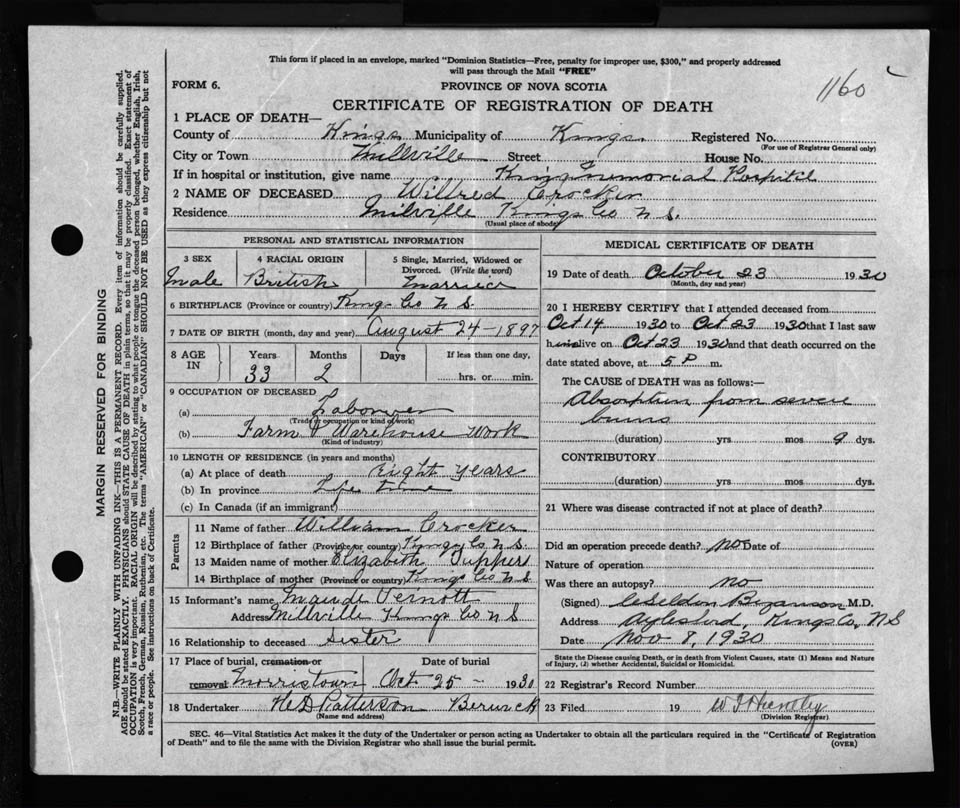 This form if placed in an envelope, marked "Dominion Statistics—Free, penalty for improper use, $300," and properly addressed
will pass through the Mail "FREE"
1160
FORM 6.
PROVINCE OF NOVA SCOTIA
CERTIFICATE OF REGISTRATION OF DEATH
1 PLACE OF DEATH—
County of Kings Municipality of Kings Registered No.
(For use of Registrar General only)
City or Town Millville Street House No.
If in hospital or institution, give name Kings Memorial Hospital
2 NAME OF DECEASED Wilfred Crocker
Residence Millville Kings Co N S.
(Usual place of abode)
PERSONAL AND STATISTICAL INFORMATION
3 SEX
Male
4 RACIAL ORIGIN
British
5 Single, Married, Widowed or
Divorced. (Write the word)
Married
6 BIRTHPLACE (Province or country) Kings Co N S
7 DATE OF BIRTH (month, day and year) August 24–1897
8 AGE IN
Years Months Days If less than one day,
33 2 hrs. or min.
9 OCCUPATION OF DECEASED
(a) Labourer
(Trade or occupation or kind of work)
(b) Farm & Warehouse Work
(Kind of industry)
10 LENGTH OF RESIDENCE (in years and months)
(a) At place of death Eight years
(b) In province Life time
(c) In Canada (if an immigrant)
Parents
11 Name of father William Crocker
12 Birthplace of father (Province or country) Kings Co N S.
13 Maiden name of mother Elizabeth Tupper
14 Birthplace of mother (Province or country) Kings Co N S
15 Informant's name Maude
Address Millville Kings Co N S
16 Relationship to deceased Sister
17 Place of burial, cremation or
removal Morristown
Date of burial
Oct 25 – 1930
18 Undertaker Patterson Berwick
(Name and address)
MEDICAL CERTIFICATE OF DEATH
19 Date of death October 23 1930
(Month, day and year)
20 I HEREBY CERTIFY that I attended deceased from
Oct 14 1930 to Oct 23 1930 that I last saw
him alive on Oct 23 1930 and that death occurred on the
date stated above, at 5 P m.
The CAUSE OF DEATH was as follows:—
Absorption from severe
burns
(duration) yrs mos 9 dys.
CONTRIBUTORY
(duration) yrs mos dys.
21 Where was disease contracted if not at place of death?
Did an operation precede death? no Date of
Nature of operation
Was there an autopsy? no
(Signed) Seldon Bezanson M.D.
Address Aylesford, Kings Co, N S
Date Nov 8, 1930
State the Disease causing Death, or in death from Violent Causes, state (1) Means and Nature
of Injury, (2) whether Accidental, Suicidal or Homicidal.
22 Registrar's Record Number
23 Filed 19
(Division Registrar)
SEC. 46—Vital Statistics Act makes it the duty of the Undertaker or person acting as Undertaker to obtain all the particulars required in the "Certificate of Registration
of Death" and to file the same with the Division Registrar who shall issue the burial permit.
(OVER)
MARGIN RESERVED FOR BINDING
N.B.—WRITE PLAINLY WITH UNFADING INK—THIS IS A PERMANENT RECORD. Every item of information should be carefully supplied.
AGE should be stated EXACTLY. PHYSICIANS should STATE CAUSE OF DEATH in plain terms, so that it may be properly classified. Exact statement of
OCCUPATION is very important. RACIAL ORIGIN will be described by stating to what people or tongue the deceased person belonged, whether English, Irish,
Scotch, French, German, Russian, Ruthenian, etc. The terms "AMERICAN" or "CANADIAN" SHOULD NOT BE USED as they express citizenship but not
a race or people. See instructions on back of Certificate.